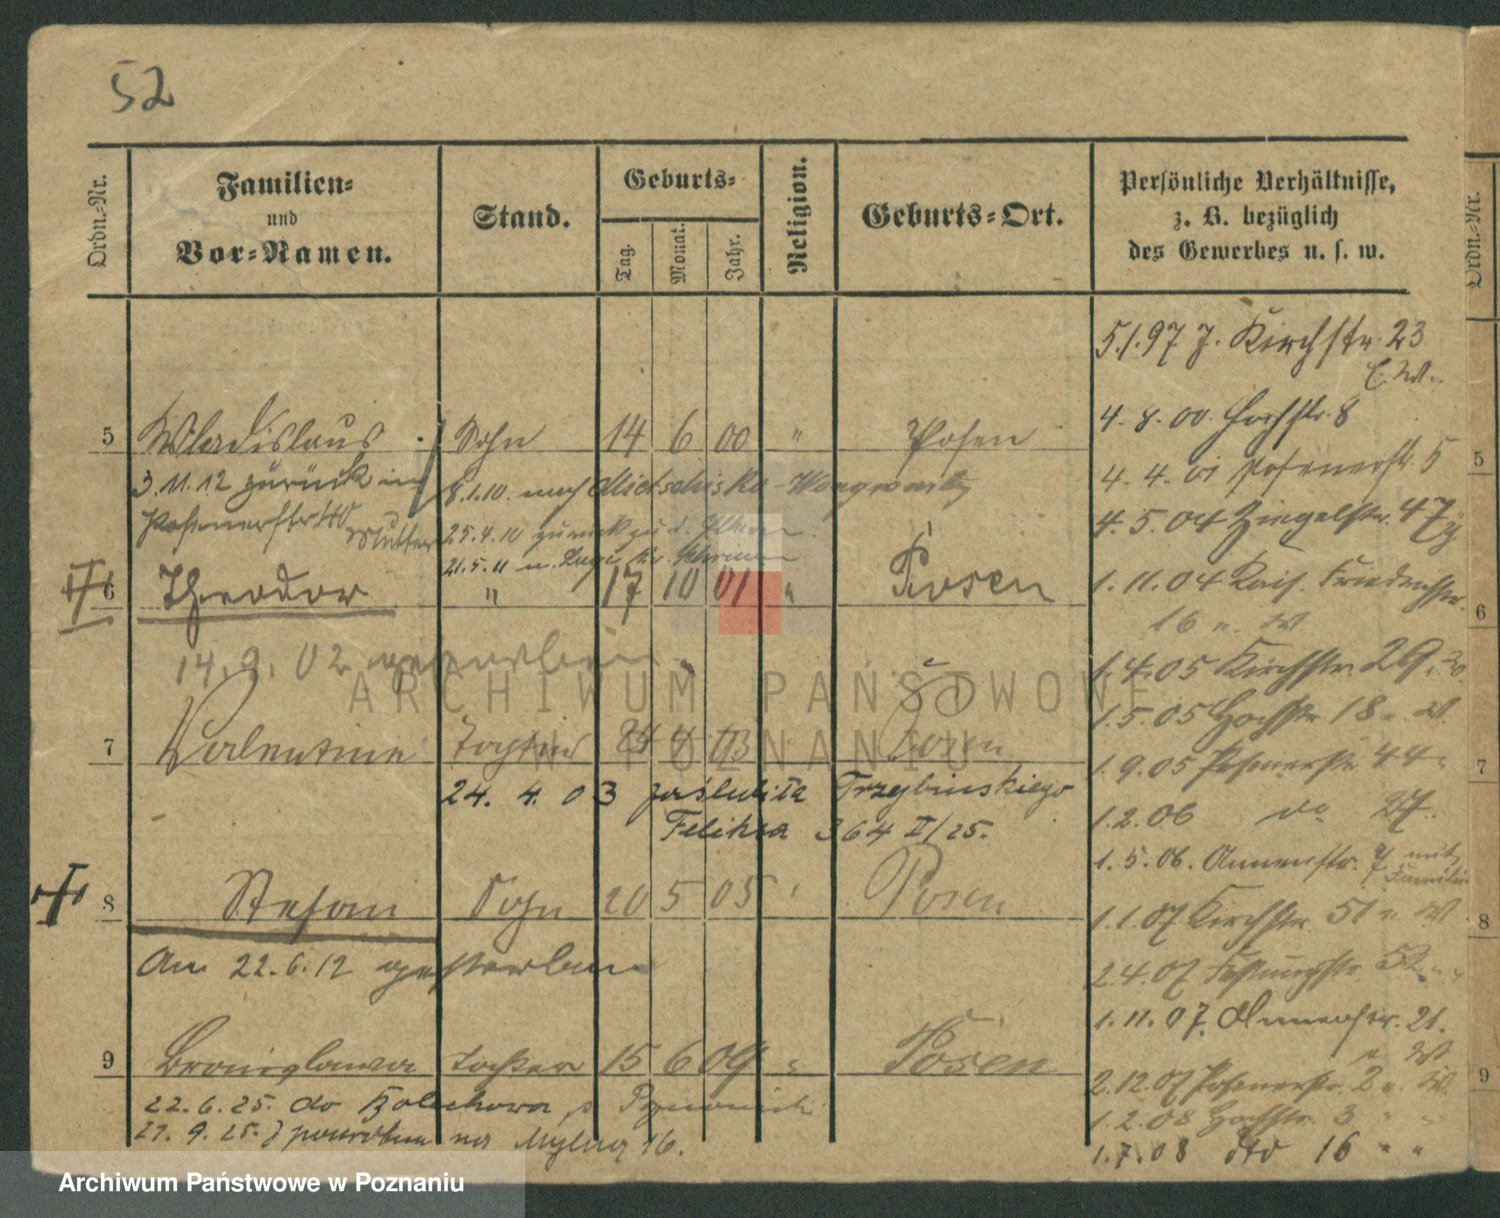 52
Ordn.-Nr.
Familien-
und
Vor-Namen.
Stand.
Geburts-
Tag.
Monat.
Jahr.
Religion.
Geburts-Ort.
Persönliche Verhältnisse,
z. B. bezüglich
des Gewerbes u. s. w.
Ordn.-Nr.
5.1.97 J. Kirchstr. 23
4. 8. 00. Hochstr. 8
5 Wladislaus Sohn 14 6 00 " Posen
4. 4. 01 Posenerstr. 5
5
3. 11. 12 zurück in
8.1.10. nach Mietschisko - Wongrowitz
Posenerstr 40
Mutter
25.4.10 zurück zu d. Eltern
4. 5. 04 Ziegelstr. 47
21.5.11 n.
6 Theodor " 17 10 01 " Posen
1. 11. 04 Kais. Friedrichstr.
16 u. W
6
14. 9. 02 gestorben.
1. 4. 05 Kirchstr. 29.
ARCHIWUM PAŃSTWOWE
1. 5. 05 Hochstr 18 u. W.
7 Valentine Tochter 24 4 03 Posen
W POZNANIU
1. 9. 05 Posenerstr 44
7
24. 4. 03 zaślubiła Trzybinskiego
Feliksa 364 II/25.
1. 2. 06 do 27.
1. 5. 06. Annenstr. 7 mit
Familie
8 Stefan Sohn 20 5 05 " Posen
1. 1. 07 Kirchstr. 50 u W
8
Am 22. 6. 12 gestorben
2.4.07 Festungsstr. 52
1. 11. 07. Annenstr. 21.
u. W
9 Bronislawa Tochter 15 6 09 " Posen
2.12.07 Posenerstr. 2 u. W.
9
22. 6. 25. do
1. 2. 08 Hochstr. 3 " "
27. 9. 25. z powrotem na Mylna 16.
1. 7. 08 dto 16 " "
Archiwum Państwowe w Poznaniu